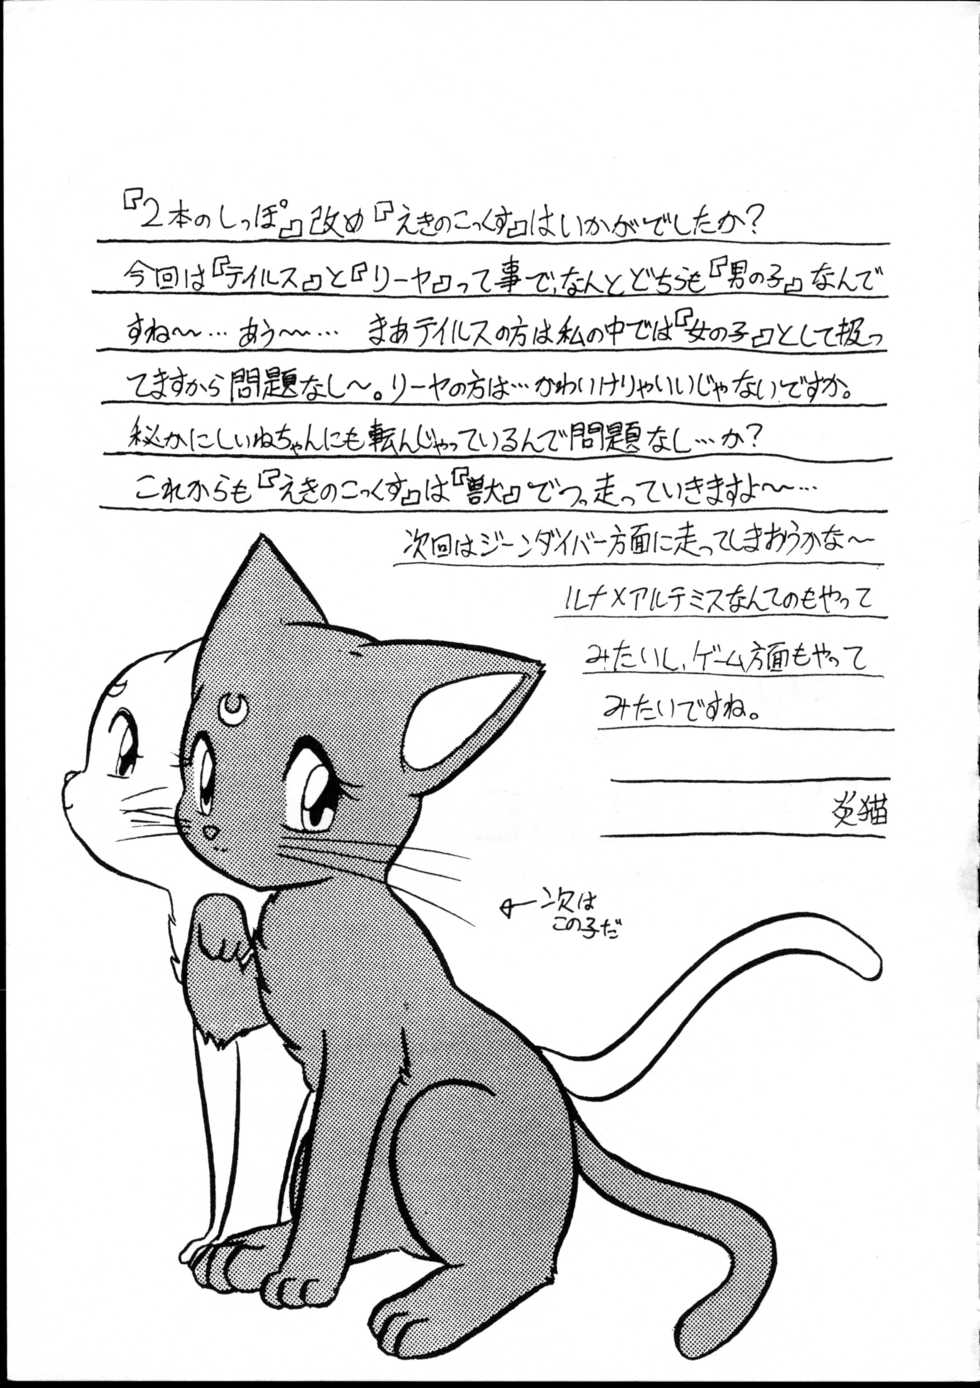 『2本のしっぽ』改め『えきのこっくす』はいかがでしたか?
今回は『テイルス』と『リーヤ』って事で、なんとどちらも『男の子』なんで
すね〜…あう〜… まあテイルスの方は私の中では『女の子』として扱っ
てますから問題なし〜。リーヤの方は…かわいけりゃいいじゃないですか。
秘かにしいねちゃんにも転んじゃっているんで問題なし…か?
これからも『えきのこっくす』は『獣』でつっ走っていきますよ〜…
次回はジーンダイバー方面に走ってしまおうかな〜
ルナ×アルテミスなんてのもやって
みたいし、ゲーム方面もやって
みたいですね。
炎猫
←次は
この子だ